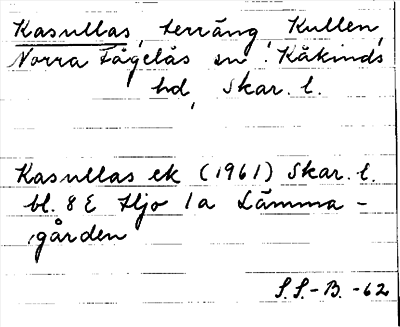 Kasullas, terräng, Kullen,
Norra Fågelås sn. Kåkinds
hd, Skar. l.
Kasullas ek (1961) Skar. l.
bl. 8 E Hjo 1a Lämma-
gården
S.S.-B. -62